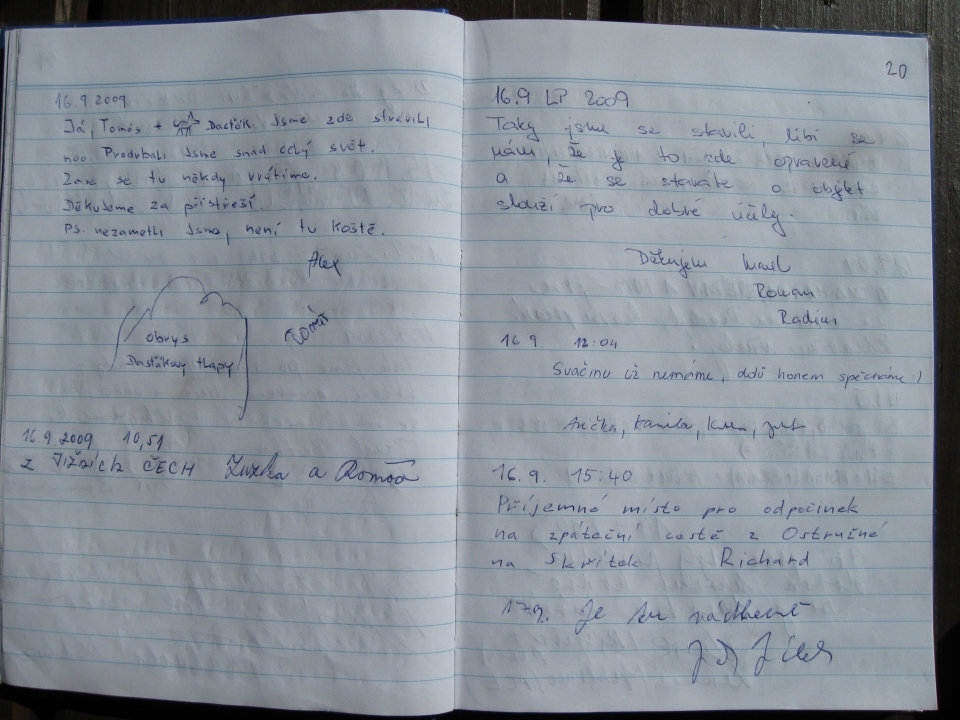 16.9.2009
Já, Tomáš + Dasťák jsme zde strávili
noc. Prodrbali jsme snad celý svět.
Zase se tu někdy vrátíme.
Děkujeme za přístřeší.
PS: nezametli jsme, není tu koště.
Alex
Tomáš
obrys
Dasťákovy tlapy
16.9.2009 10,51
z Jižních ČECH Zuzka a Roman
20
16.9 LP 2009
Taky jsme se stavili, líbí se
nám, že je to zde opravené
a že se staráte a objekt
slouží pro dobré účely.
Děkujem
Roman
Radim
16 9. 12:04
Svačinu už nemáme, dolů honem spěcháme :)
Anička, Kamila,
16.9. 15:40
Příjemné místo pro odpočinek
na zpáteční cestě z Ostružné
na Skřítek Richard
17.9. Je tu nádherně